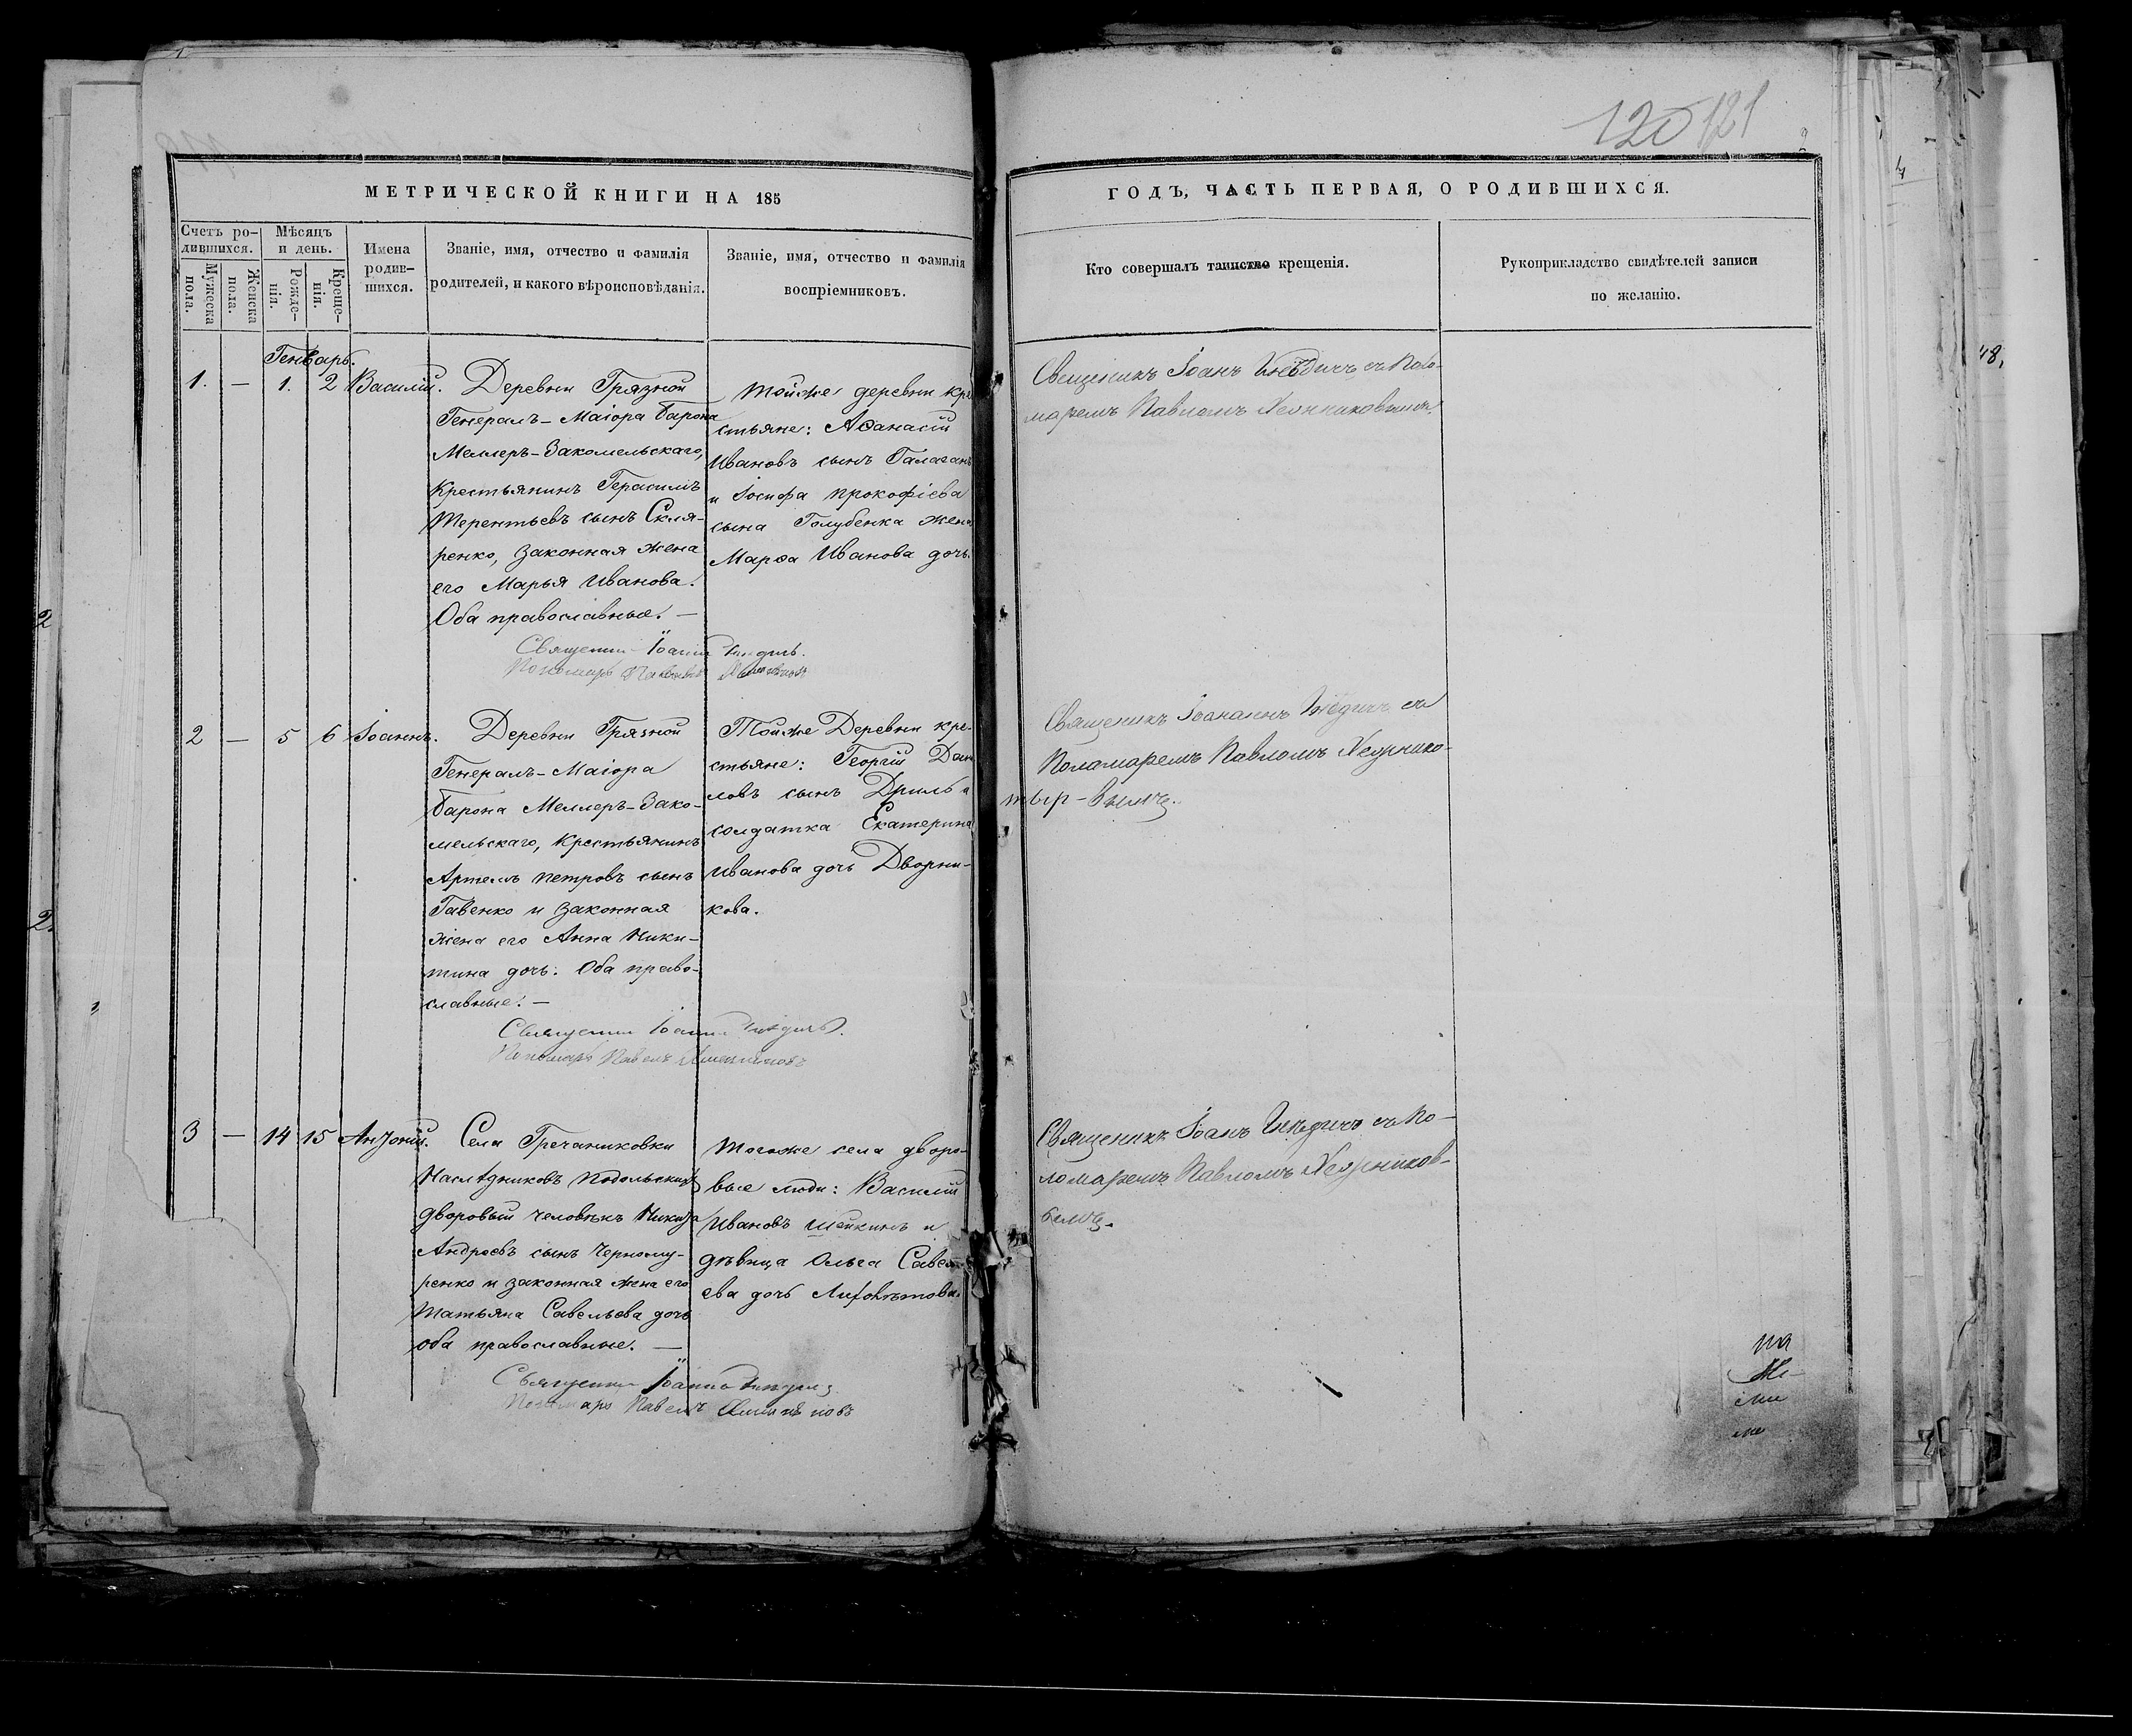 120 121
МЕТРИЧЕСКОЙ КНИГИ НА 185
ГОДЪ, ЧАСТЬ ПЕРВАЯ, О РОДИВШИХСЯ.
Счетъ ро-
дившихся.
Мужеска
пола.
Женска
пола.
Мѣсяцъ
и день.
Рожде-
нія.
Креще-
нія.
Имена
родив-
шихся.
Званіе, имя, отчество и фамилія
родителей, и какого вѣроисповѣданія.
Званіе, имя, отчество и фамилія
воспріемниковъ.
Кто совершалъ таинство крещенія.
Рукоприкладство свидѣтелей записи
по желанію.
Генварь.
1. — 1. 2 Василій.
Деревни Грязной
Генералъ-Маіора барона
Меллеръ-Закомельскаго,
Крестьянинъ Герасимъ
Терентьевъ сынъ Скля-
ренко, законная жена
его Марья Иванова.
Оба православные. —
тойже деревни кре
стьяне: Аѳанасій
Ивановъ сынъ Галаганъ
и Іосифа прокофіева
сына Голубенка жена
Марѳа Иванова дочь.
Священни Іоаннъ
Пономарь Павелъ
Священикъ Іоанъ съ Поло-
маремъ Павломъ
2 — 5 6 Іоаннъ.
Деревни Грязной
Генералъ-Маіора
барона Меллеръ-Зако-
мельскаго, Крестьянинъ
Артемъ петровъ сынъ
Гавенко и законная
жена его Анна Ники-
тина дочь. Оба право-
славные. —
Тойже Деревни кре-
стьяне: Георгій Дан
ловъ сынъ Дриль и
солдатка Екатерина
Иванова дочь Дворни-
кова.
Священни Іоаннъ
Пономарь Павелъ
Священикъ съ
Поламаремъ Павломъ
3 — 14 15 Антоній.
Села Гречаниковки
Наслѣдниковъ Подольскихъ
дворовый человѣкъ Никита
Андреевъ сынъ Черному-
ренко и законная жена его
Татьяна Савельева дочь
оба православные. —
тогоже села дворо-
вые люди: Василій
Ивановъ Шейкинъ и
дѣвица Ольга Савель
ева дочь
Священни Іоаннъ
Пономарь Павелъ
Священикъ Іоанъ съ По-
ломаремъ Павломъ